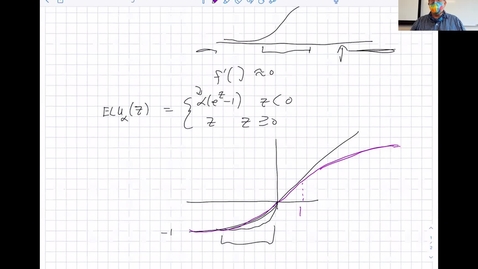 f'( ) ≈0
ELU_α(z) = { α(e^z-1) z<0
z z≥0
-1
1